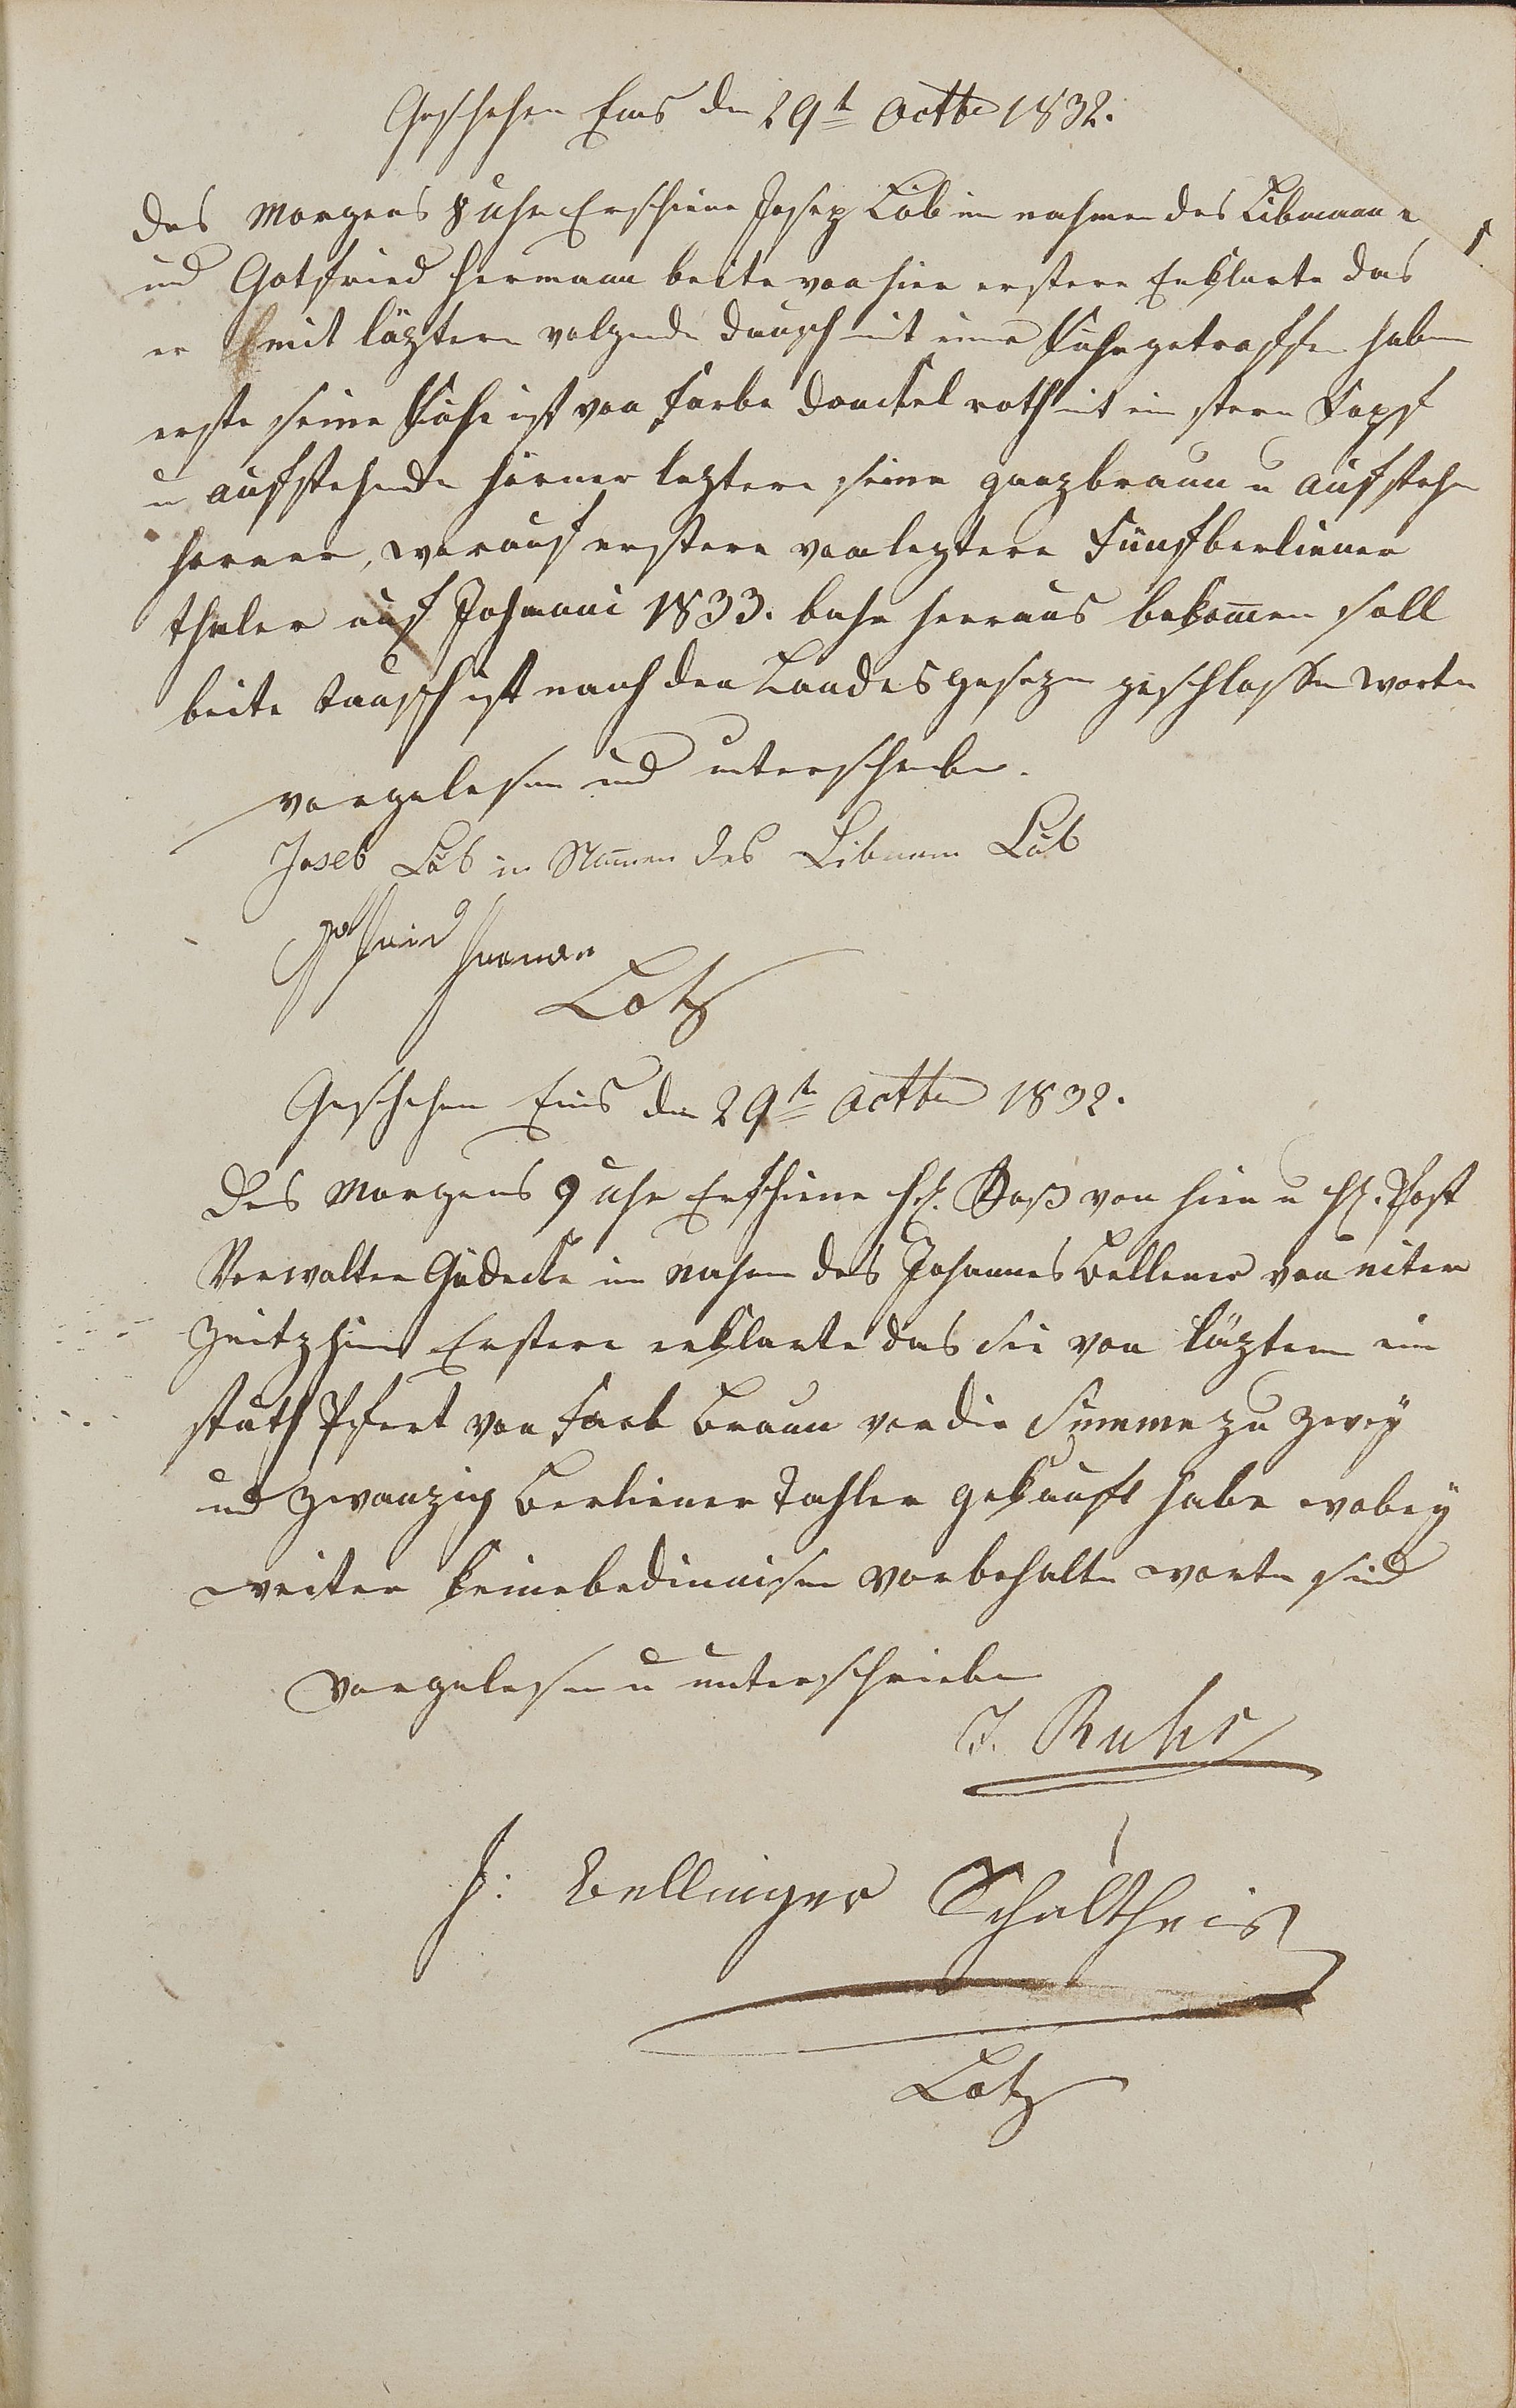 Geschehen Ems den 29t Octbr 1832.
Des Morgens 8 uhr Erschiene Josep Löb im nahmen des Libmann
und Gotfried Hermann beite von hier erstere Erklarte das
er mit läztern volgende dausch mit eine Kuhe getroffen haben
erste seine Kuhe ist von Farbe donckel roth mit ein stern Kopf
u aufstehende hörner leztere seine ganz braun u aufstehe
horner, worauf erstere von leztere Fünf berliener
thaler auf Johanni 1833. bahr herraus bekomen soll
beite tausch ist nach den Landes gesezen geschlossen worten
vorgelesen und unterschrieben.
Joseb Löb im Namen des Libmann Löb
Gotfried Hermann
Lotz
Geschehen Ems den 29t Octbr 1832.
Des Morgens 9 uhr Erschiene H. von hier u H. Post
Verwalter im Nahmen des Johannes Bellener von
Erstere erklarte das sie von läztern ein
stuth Pfert von Farb Braun vor die Summe zu zwey
und zwanzig Berliener Tahler gekauft habe wobey
weiter keine bedinnisen vorbehalten worten sind
vorgelesen u unterschrieben
J. Ruhs
J: Bellinger Schultheis
Lotz